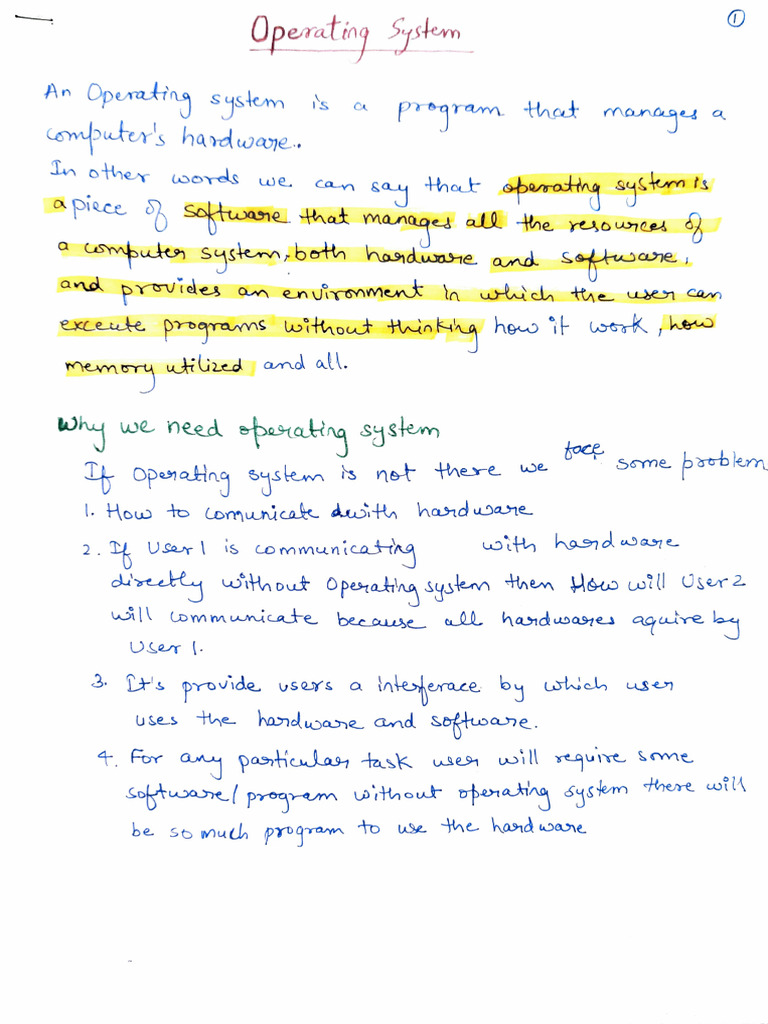 ①
Operating System
An Operating system is a program that manages a
computer's hardware.
In other words we can say that operating system is
a piece of software that manages all the resources of
a computer system, both hardware and software,
and provides an environment in which the user can
exceute programs without thinking how it work, how
memory utilized and all.
Why we need operating system
If Operating system is not there we face some problem
1. How to comunicate with hardware
2. If User 1 is communicating with hardware
directly without Operating system then How will User 2
will communicate because all hardwares aquire by
User 1.
3. It's provide users a interferace by which user
uses the hardware and software.
4. For any particular task user will require some
software/program without operating system there will
be so much program to use the hardware